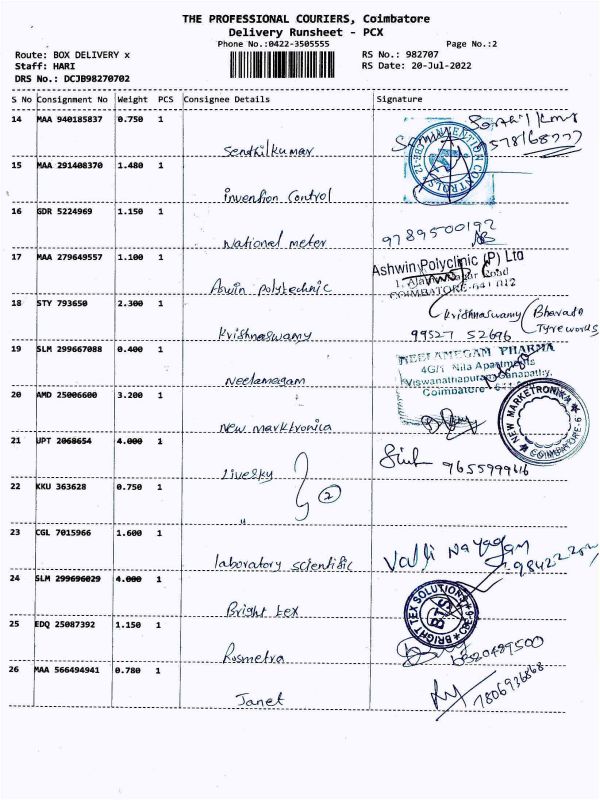 THE PROFESSIONAL COURIERS, Coimbatore
Delivery Runsheet - PCX
Phone No.:0422-3505555 Page No.:2
Route: BOX DELIVERY x RS No.: 982707
Staff: HARI RS Date: 20-Jul-2022
DRS No.: DCJB98270702
S No Consignment No Weight PCS Consignee Details Signature
14 MAA 940185837 0.750 1
Senthilkumar
15 MAA 291408370 1.480 1
invention control
16 GDR 5224969 1.150 1
National meter 9789500192
17 MAA 279649557 1.100 1
Ashwin Polyclinic (P) Ltd
Aswin polytechnic
COIMBATORE-641 012
18 STY 793650 2.300 1
Krishnaswamy Bharath
Tyre words
Krishnaswamy 99527 52696
19 SLM 299667088 0.400 1
NEELAMEGAM PHARMA
4G/1 Nila Apartments
Viswanathapuram Ganapathy,
Neelamegam
Coimbatore
20 AMD 25006600 3.200 1
NEW MARKETRONIKA
COIMBATORE-6
New marktronica
21 UPT 2068654 4.000 1
Livesky 9655999616
22 KKU 363628 0.750 1
2
"
23 CGL 7015966 1.600 1
laboratory scientific Valli Nayagam
24 SLM 299696029 4.000 1
BRIGHT TEX SOLUTIONS
BTS
Bright tex
25 EDQ 25087392 1.150 1
Rosmetra
26 MAA 566494941 0.780 1
Janet 7806936868